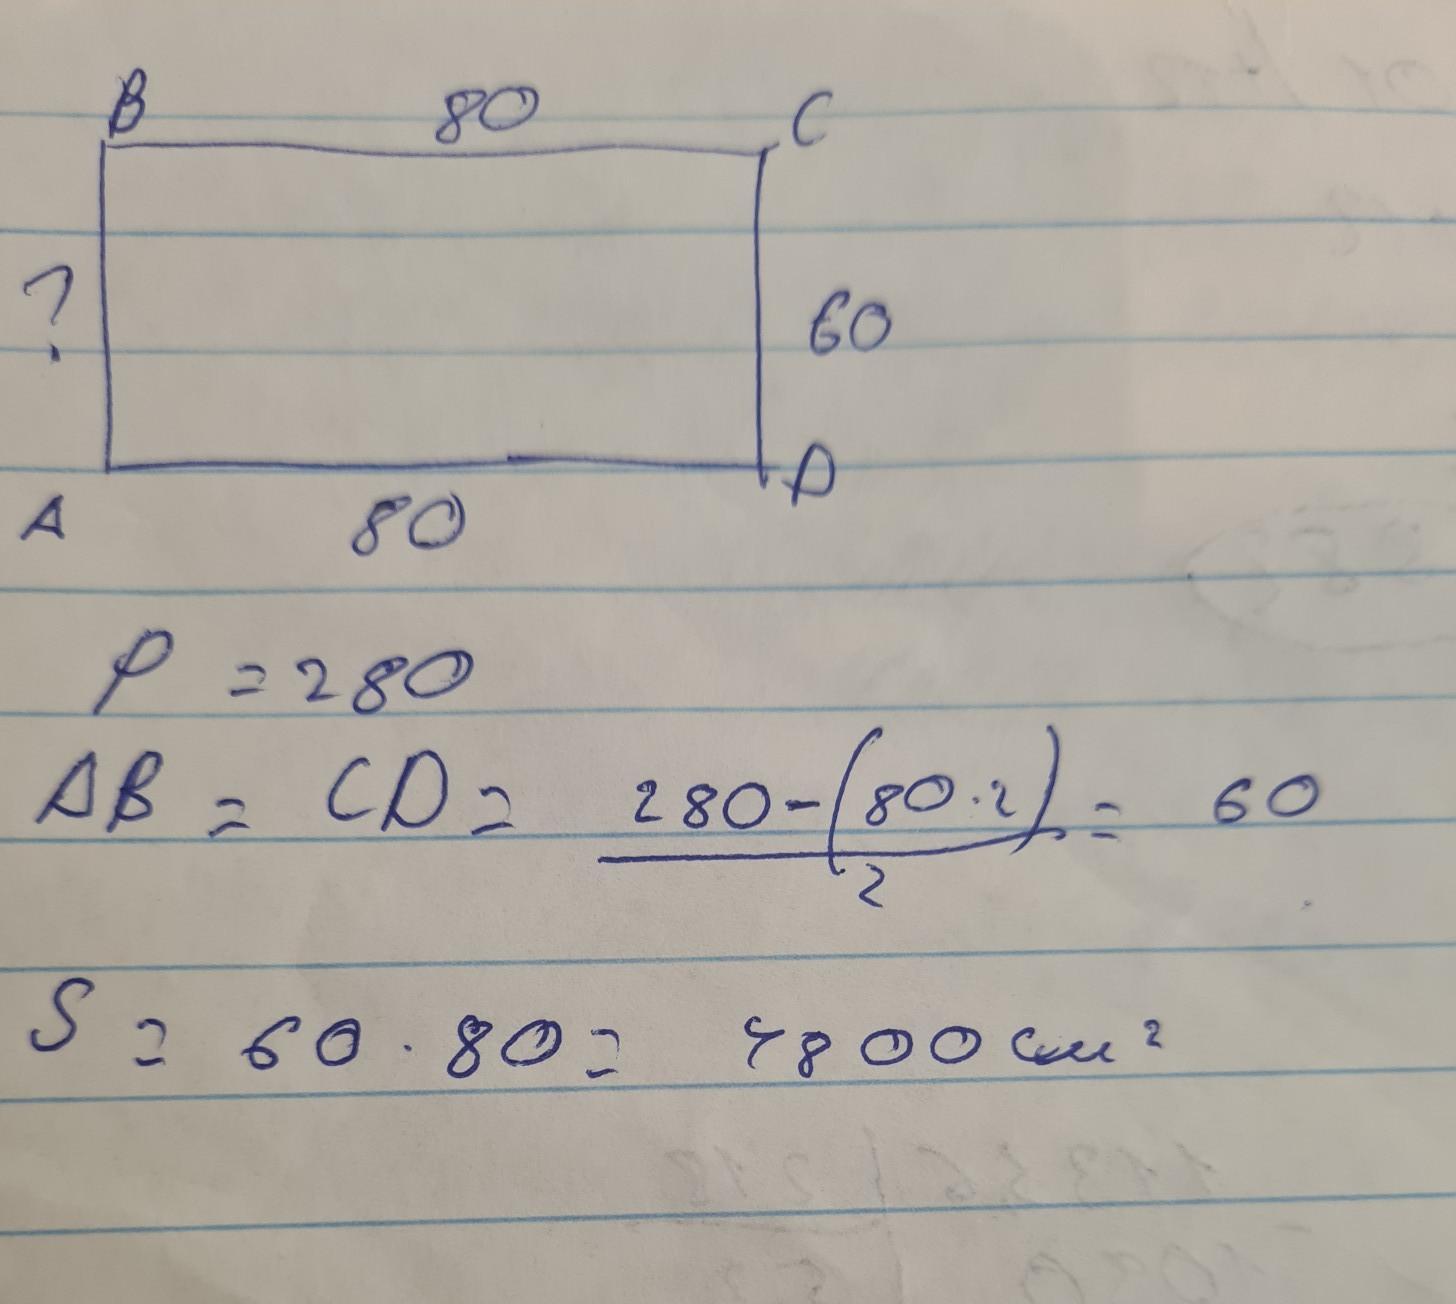 B 80 C
? 60
A 80 D
P = 280
AB = CD = 280-(80·2)/2 = 60
S = 60·80 = 4800 см²